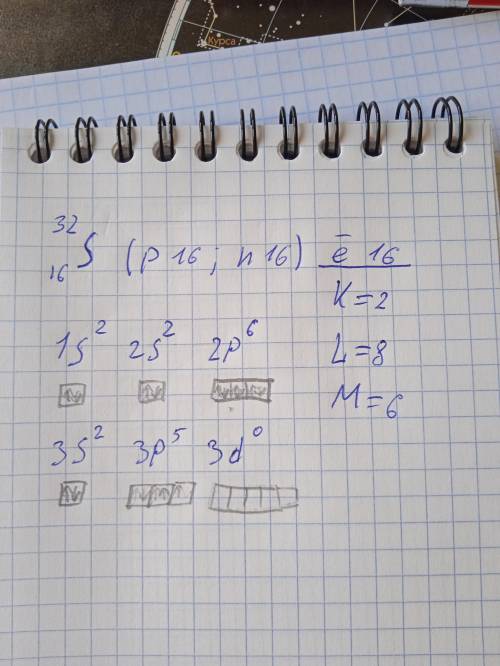 Курса
³²₁₆S (p 16 ; n 16) ē 16
K=2
1s² 2s² 2p⁶
L=8
M=6
3s² 3p⁵ 3d⁰